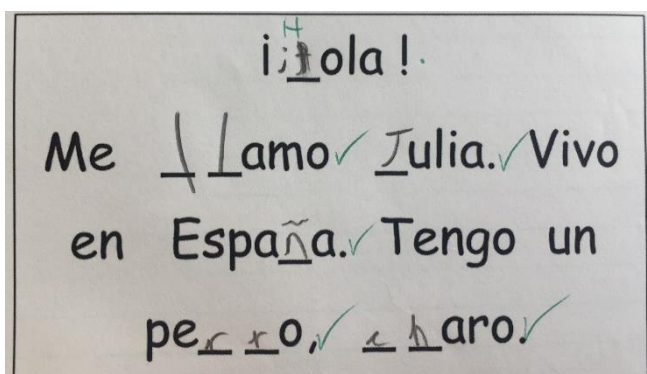 ¡Hola!
Me llamo Julia. Vivo
en España. Tengo un
perro, charo.